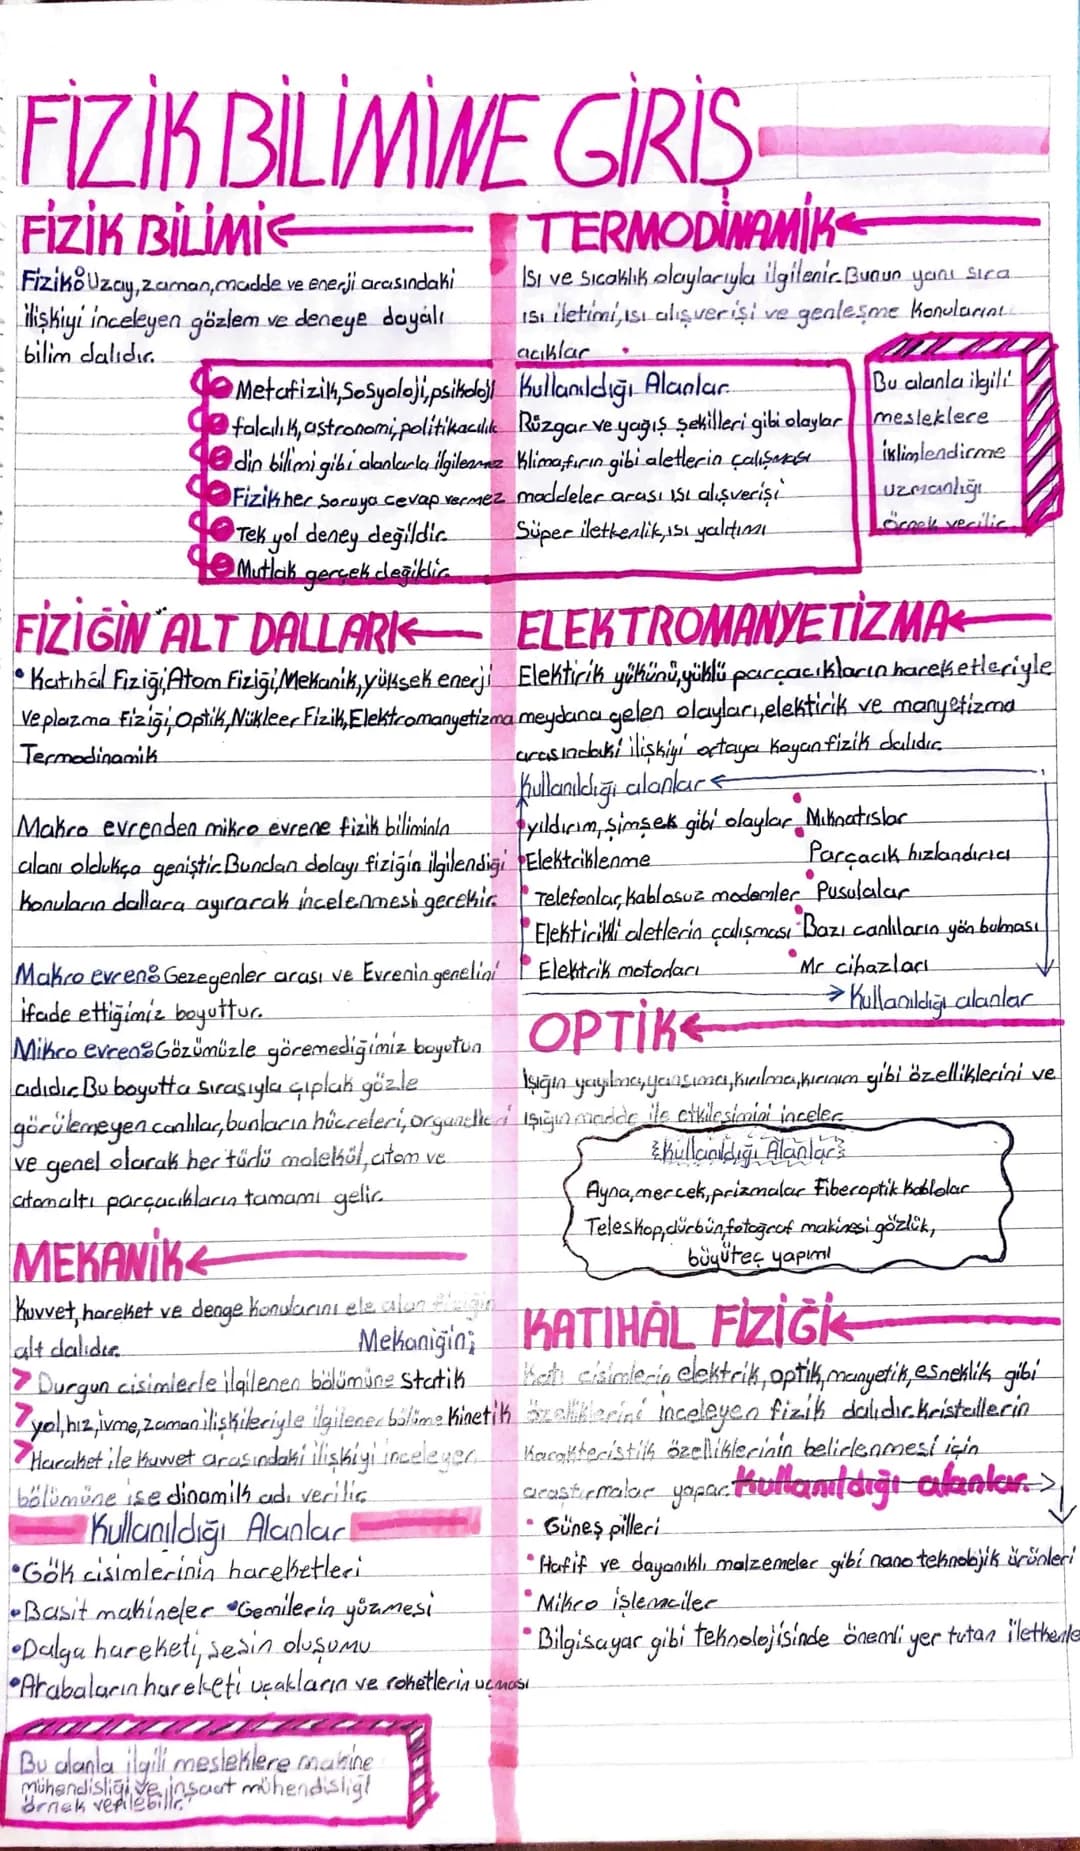 FİZİK BİLİMİNE GİRİŞ
FİZİK BİLİMİ
Fizik: Uzay, zaman, madde ve enerji arasındaki
ilişkiyi inceleyen gözlem ve deneye dayalı
bilim dalıdır.
Metafizik, Sosyoloji, psikoloji
falcılık, astronomi, politikacılık
din bilimi gibi alanlarla ilgilenmez
Fizik her soruya cevap vermez
Tek yol deney değildir.
Mutlak gerçek değildir
FİZİĞİN ALT DALLARI
• Katıhâl Fiziği, Atom Fiziği, Mekanik, yüksek enerji
ve plazma fiziği, Optik, Nükleer Fizik, Elektromanyetizma
Termodinamik
Makro evrenden mikro evrene fizik biliminin
alanı oldukça geniştir. Bundan dolayı fiziğin ilgilendiği
konuların dallara ayıracak incelenmesi gerekir.
Makro evren: Gezegenler arası ve Evrenin genelini
ifade ettiğimiz boyuttur.
Mikro evren: Gözümüzle göremediğimiz boyutun
adıdır. Bu boyutta sırasıyla çıplak gözle
görülemeyen canlılar, bunların hücreleri, organelleri
ve genel olarak her türlü molekül, atom ve
atomaltı parçacıkların tamamı gelir.
MEKANİK
Kuvvet, hareket ve denge konularını ele alan fiziğin
alt dalıdır. Mekaniğin;
> Durgun cisimlerle ilgilenen bölümüne Statik
> yol, hız, ivme, zaman ilişkileriyle ilgilenen bölüme Kinetik
> Haraket ile kuvvet arasındaki ilişkiyi inceleyen
bölümüne ise dinamik adı verilir
Kullanıldığı Alanlar
• Gök cisimlerinin hareketleri
• Basit makineler • Gemilerin yüzmesi
• Dalga hareketi, sesin oluşumu
• Arabaların hareketi uçakların ve roketlerin uçması
Bu alanla ilgili mesleklere makine
mühendisliği ve inşaat mühendisliği
örnek verilebilir.
TERMODİNAMİK
Isı ve sıcaklık olaylarıyla ilgilenir. Bunun yanı sıra
ısı iletimi, ısı alışverişi ve genleşme konularını
açıklar.
Kullanıldığı Alanlar
Rüzgar ve yağış şekilleri gibi olaylar
Klima, fırın gibi aletlerin çalışması
maddeler arası ısı alışverişi
Süper iletkenlik, ısı yalıtımı
Bu alanla ilgili
mesleklere
iklimlendirme
uzmanlığı
örnek verilir
ELEKTROMANYETİZMA
Elektirik yükünü, yüklü parçacıkların hareketleriyle
meydana gelen olayları, elektirik ve manyetizma
arasındaki ilişkiyi ortaya koyan fizik dalıdır.
Kullanıldığı alanlar
• yıldırım, şimşek gibi olaylar • Mıknatıslar
• Elektriklenme • Parçacık hızlandırıcı
• Telefonlar, kablosuz modemler • Pusulalar
• Elektirikli aletlerin çalışması • Bazı canlıların yön bulması
• Elektrik motorları • Mr cihazları
Kullanıldığı alanlar
OPTİK
Işığın yayılma, yansıma, kırılma, kırınım gibi özelliklerini ve
ışığın madde ile etkileşimini inceler
Kullanıldığı Alanlar
Ayna, mercek, prizmalar Fiberoptik kablolar
Teleskop, dürbün, fotoğraf makinesi gözlük,
büyüteç yapımı
KATIHÂL FİZİĞİ
Katı cisimlerin elektrik, optik, manyetik, esneklik gibi
özelliklerini inceleyen fizik dalıdır. Kristallerin
karakteristik özelliklerinin belirlenmesi için
araştırmalar yapar. Kullanıldığı alanlar
• Güneş pilleri
• Hafif ve dayanıklı malzemeler gibi nano teknolojik ürünleri
• Mikro işlemciler
• Bilgisayar gibi teknolojisinde önemli yer tutan